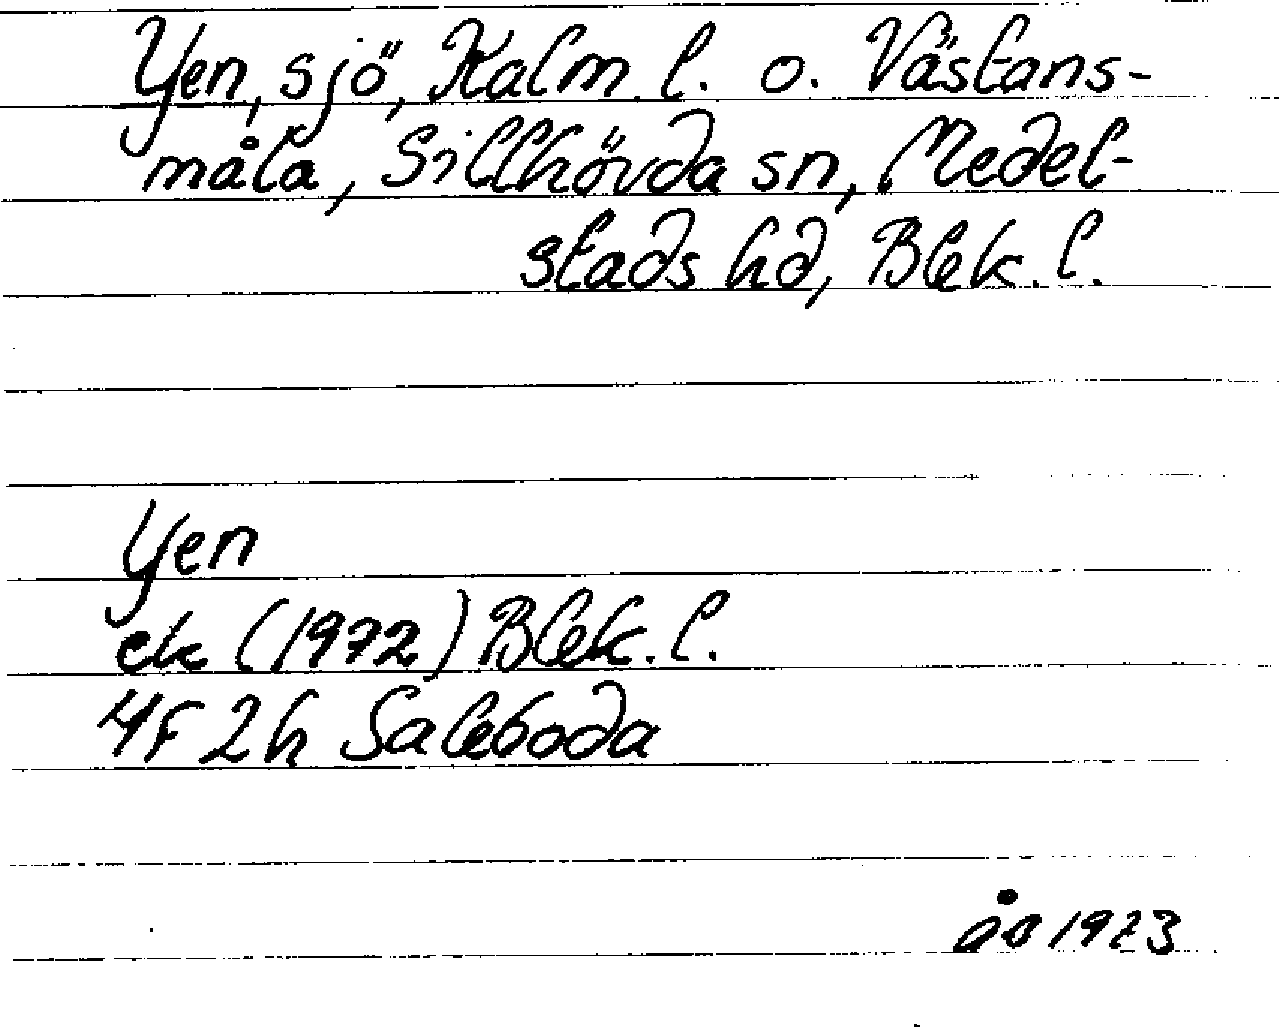 Yen, sjö, Kalm. l. o. Västans-
måla, Sillhövda sn, Medel-
stads hd, Blek. l.
Yen
ek (1972) Blek. l.
4F 2h Saleboda